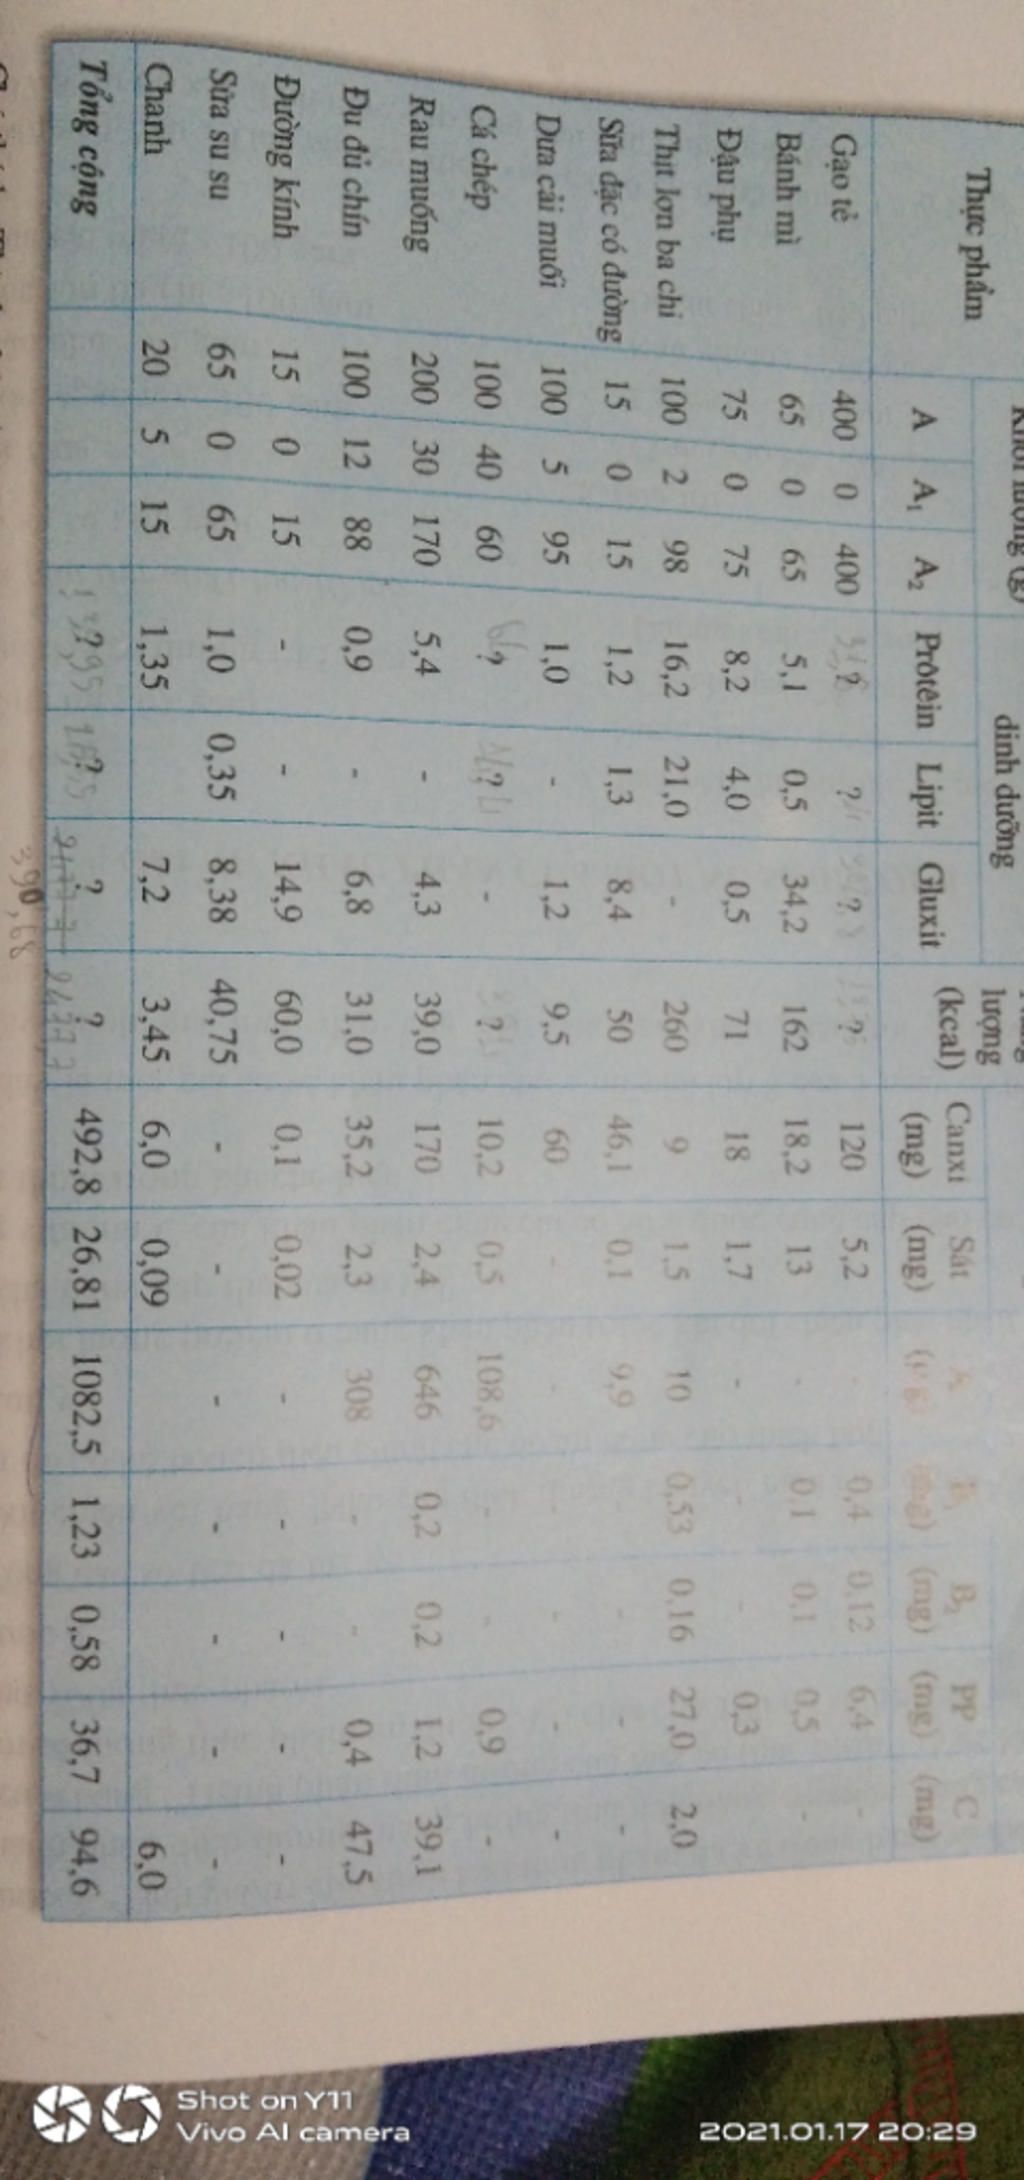 Thực phẩm
dinh dưỡng
lượng (kcal)
A A₁ A₂ Prôtêin Lipit Gluxit Canxi (mg) Sắt (mg) A B₁ (mg) B₂ (mg) PP (mg) C (mg)
Gạo tẻ 400 0 400 ? ? ? ? 120 5,2 - 0,4 0,12 6,4 -
Bánh mì 65 0 65 5,1 0,5 34,2 162 18,2 13 - 0,1 0,1 0,5 -
Đậu phụ 75 0 75 8,2 4,0 0,5 71 18 1,7 - - - 0,3
Thịt lợn ba chỉ 100 2 98 16,2 21,0 - 260 9 1,5 10 0,53 0,16 27,0 2,0
Sữa đặc có đường 15 0 15 1,2 1,3 8,4 50 46,1 0,1 9,9 - - - -
Dưa cải muối 100 5 95 1,0 - 1,2 9,5 60 - - - - - -
Cá chép 100 40 60 ? ? - ? 10,2 0,5 108,6 - - 0,9 -
Rau muống 200 30 170 5,4 - 4,3 39,0 170 2,4 646 0,2 0,2 1,2 39,1
Đu đủ chín 100 12 88 0,9 - 6,8 31,0 35,2 2,3 308 - - 0,4 47,5
Đường kính 15 0 15 - - 14,9 60,0 0,1 0,02 - - - - -
Sữa su su 65 0 65 1,0 0,35 8,38 40,75 - - - - - - -
Chanh 20 5 15 1,35 7,2 3,45 6,0 0,09 6,0
Tổng cộng ? ? ? ? 492,8 26,81 1082,5 1,23 0,58 36,7 94,6
390,68
Shot on Y11
Vivo AI camera
2021.01.17 20:29